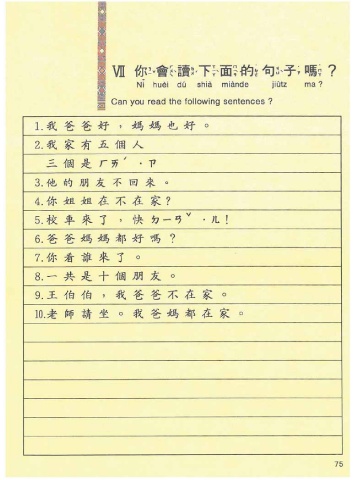 Ⅶ 你會讀下面的句子嗎？
Nǐ huèi dú shià miànde jiùtz ma ?
Can you read the following sentences ?
1.我爸爸好，媽媽也好。
2.我家有五個人
三個是ㄏㄞˊ．ㄗ
3.他的朋友不回來。
4.你姐姐在不在家？
5.校車來了，快ㄅㄧㄢˇ．ㄦ！
6.爸爸媽媽都好嗎？
7.你看誰來了。
8.一共是十個朋友。
9.王伯伯，我爸爸不在家。
10.老師請坐。我爸媽都在家。
75